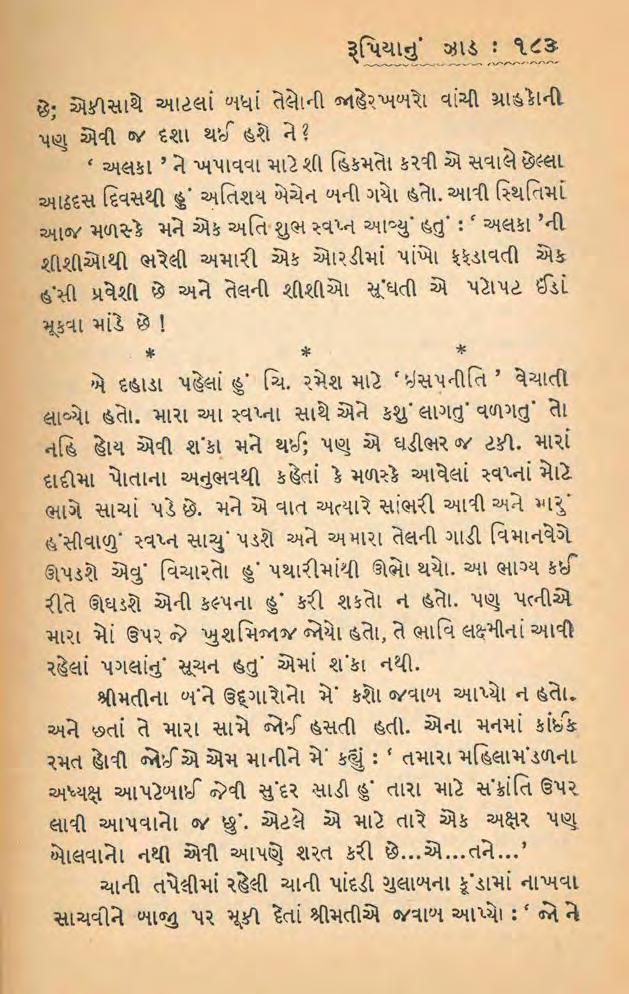 રૂપિયાનું ઝાડ : ૧૮૩
છે; એકીસાથે આટલાં બધાં તેલોની જાહેરખબરો વાંચી ગ્રાહકોની
પણ એવી જ દશા થઈ હશે ને ?
‘ અલકા ’ ને ખપાવવા માટે શી હિકમતો કરવી એ સવાલે છેલ્લા
આઠદસ દિવસથી હું અતિશય બેચેન બની ગયો હતો. આવી સ્થિતિમાં
આજ મળસ્કે મને એક અતિ શુભ સ્વપ્ન આવ્યું હતું : ‘ અલકા ’ની
શીશીઓથી ભરેલી અમારી એક ઓરડીમાં પાંખો ફફડાવતી એક
હંસી પ્રવેશી છે અને તેલની શીશીઓ સૂંઘતી એ પટોપટ ઈંડાં
મૂકવા માંડે છે !
* * *
બે દહાડા પહેલાં હું ચિ. રમેશ માટે ‘ ઇસપનીતિ ’ વેચાતી
લાવ્યો હતો. મારા આ સ્વપ્ના સાથે એને કશું લાગતું વળગતું તો
નહિ હોય એવી શંકા મને થઈ; પણ એ ઘડીભર જ ટકી. મારાં
દાદીમા પોતાના અનુભવથી કહેતાં કે મળસ્કે આવેલાં સ્વપ્નાં મોટે
ભાગે સાચાં પડે છે. મને એ વાત અત્યારે સાંભરી આવી અને મારું
હંસીવાળું સ્વપ્ન સાચું પડશે અને અમારા તેલની ગાડી વિમાનવેગે
ઊપડશે એવું વિચારતો હું પથારીમાંથી ઊભો થયો. આ ભાગ્ય કઈ
રીતે ઊઘડશે એની કલ્પના હું કરી શકતો ન હતો. પણ પત્નીએ
મારા મોં ઉપર જે ખુશમિજાજ જોયો હતો, તે ભાવિ લક્ષ્મીનાં આવી
રહેલાં પગલાંનું સૂચન હતું એમાં શંકા નથી.
શ્રીમતીના બંને ઉદ્દગારોનો મેં કશો જવાબ આપ્યો ન હતો.
અને છતાં તે મારા સામે જોઈ હસતી હતી. એના મનમાં કાંઈક
રમત હોવી જોઈએ એમ માનીને મેં કહ્યું : ‘ તમારા મહિલામંડળના
અધ્યક્ષ આપટેબાઈ જેવી સુંદર સાડી હું તારા માટે સંક્રાંતિ ઉપર
લાવી આપવાનો જ છું. એટલે એ માટે તારે એક અક્ષર પણ
બોલવાનો નથી એવી આપણે શરત કરી છે...એ...તને...’
ચાની તપેલીમાં રહેલી ચાની પાંદડી ગુલાબના કૂંડામાં નાખવા
સાચવીને બાજુ પર મૂકી દેતાં શ્રીમતીએ જવાબ આપ્યો : ‘ જો ને